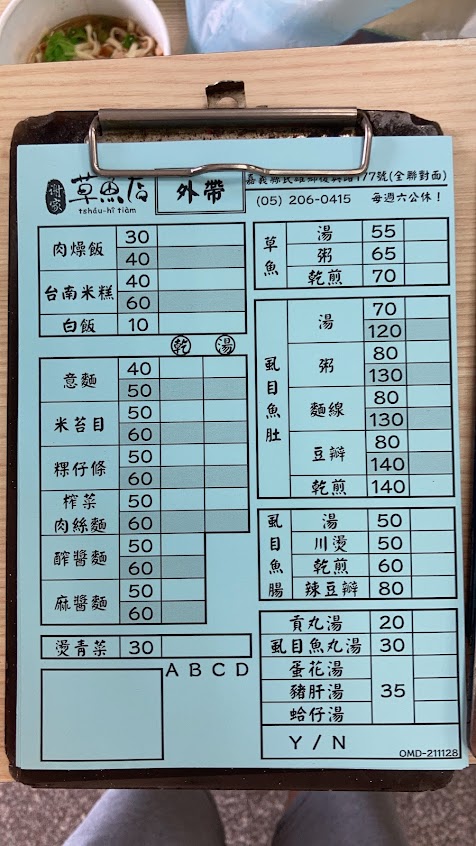 謝家 草魚店
tsháu-hî tiàm
外帶
嘉義縣民雄鄉復興路177號(全聯對面)
(05) 206-0415 每週六公休!
肉燥飯 30
40
台南米糕 40
60
白飯 10
乾 湯
意麵 40
50
米苔目 50
60
粿仔條 50
60
榨菜肉絲麵 50
60
酢醬麵 50
60
麻醬麵 50
60
燙青菜 30
A B C D
草魚
湯 55
粥 65
乾煎 70
虱目魚肚
湯 70
120
粥 80
130
麵線 80
130
豆瓣 80
140
乾煎 140
虱目魚腸
湯 50
川燙 50
乾煎 60
辣豆瓣 80
貢丸湯 20
虱目魚丸湯 30
蛋花湯
豬肝湯 35
蛤仔湯
Y / N
OMD-211128